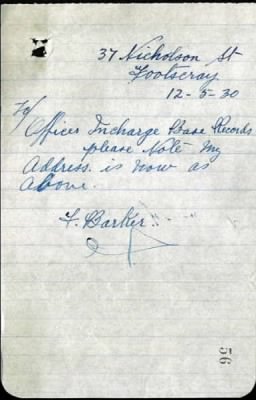 37 Nicholson St
Footscray
12-5-30
To/
Officer Incharge Base Records
please Note My
Address is now as
above.
F. Barker
56